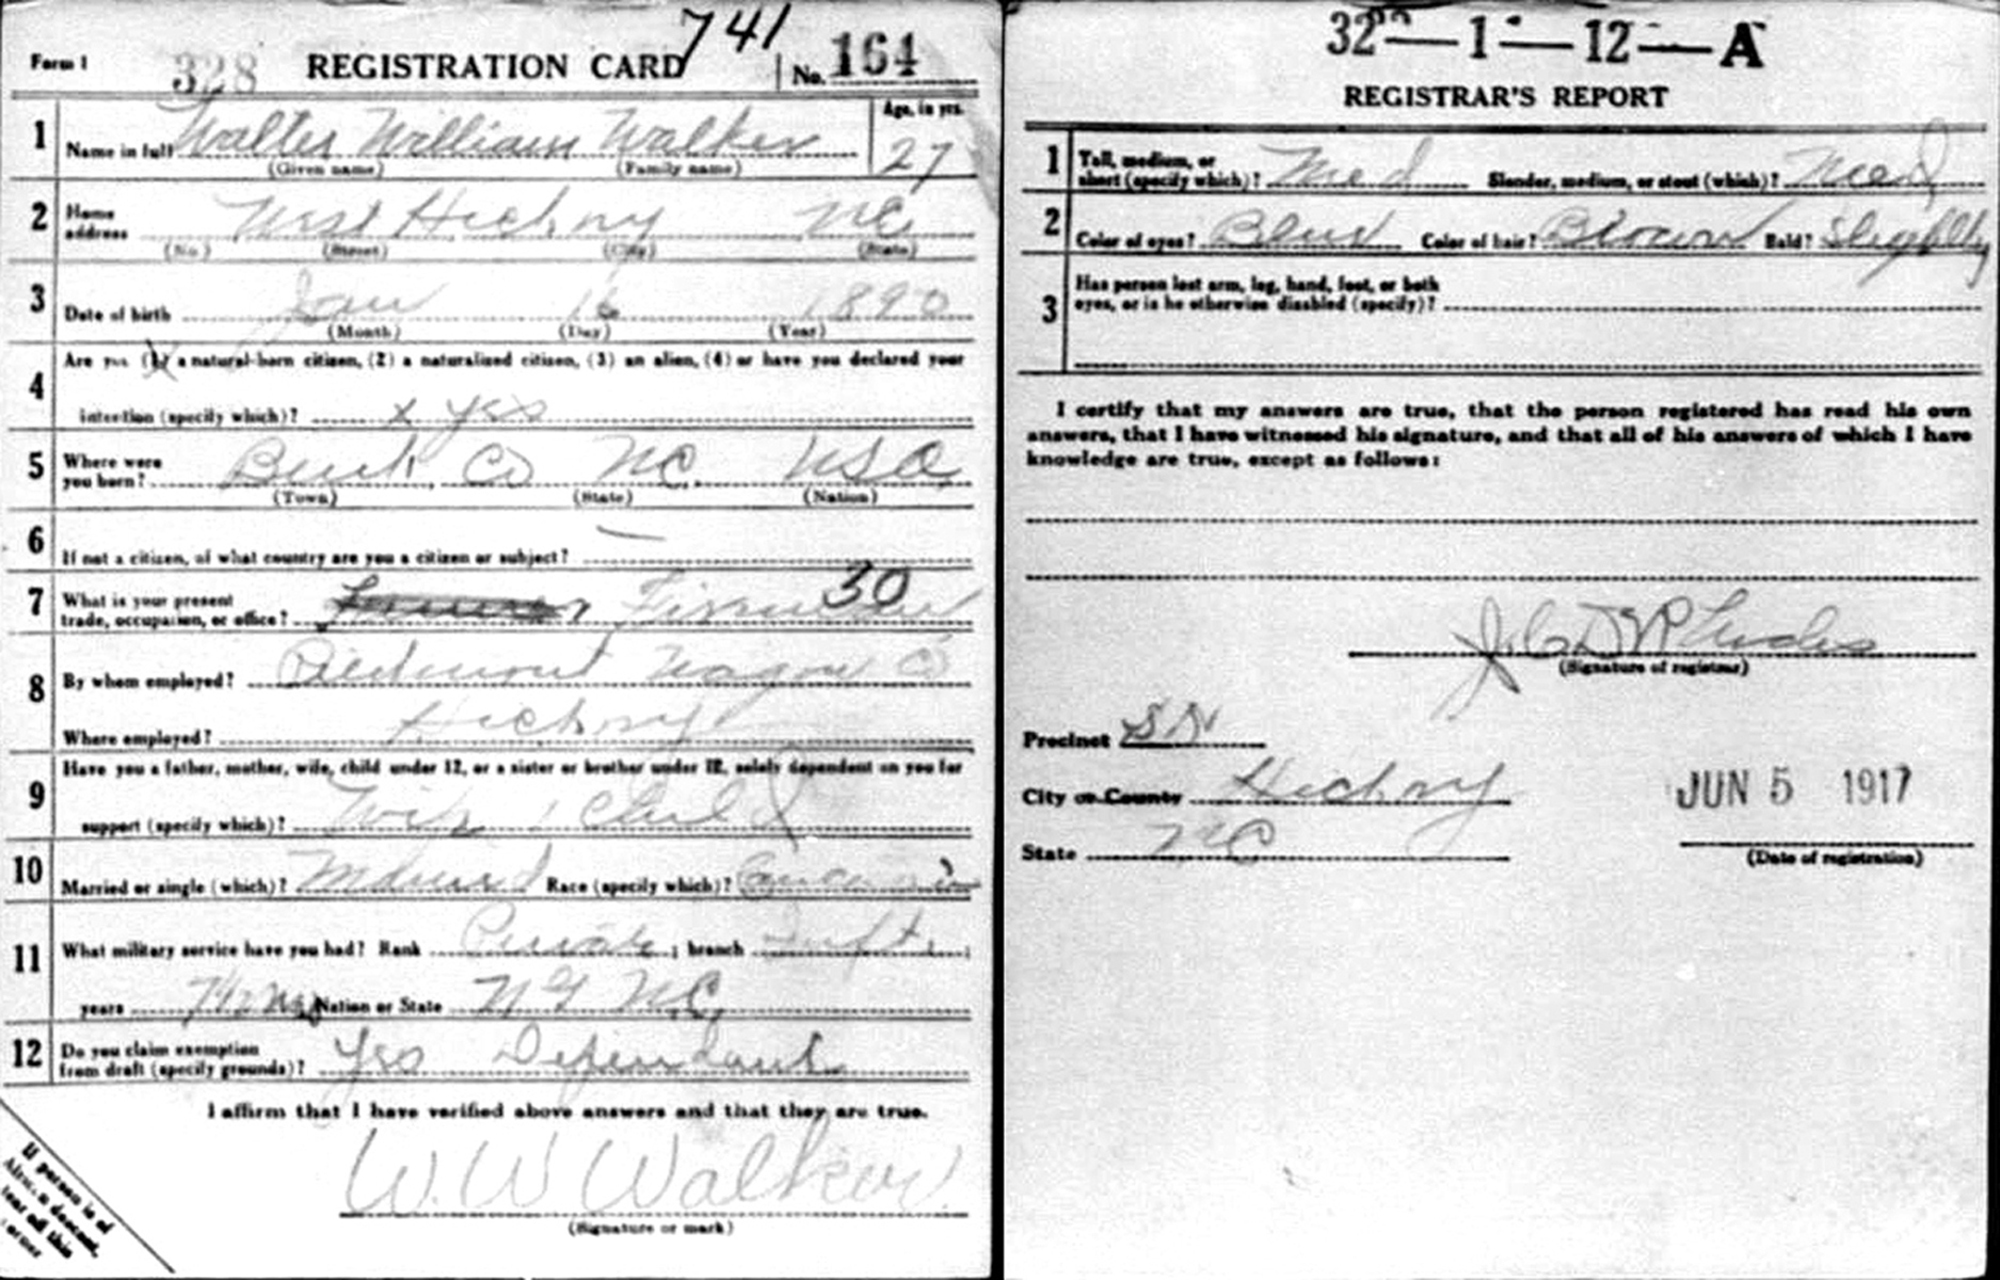 741
Form 1 328 REGISTRATION CARD No. 164
1 Name in full Walter William Walker Age, in yrs. 27
(Given name) (Family name)
2 Home address West Hickory NC
(No.) (Street) (City) (State)
3 Date of birth Jan 16 1890
(Month) (Day) (Year)
Are you (1) a natural-born citizen, (2) a naturalized citizen, (3) an alien, (4) or have you declared your
4 intention (specify which)? x yes
5 Where were you born? Burk Co NC USA
(Town) (State) (Nation)
6 If not a citizen, of what country are you a citizen or subject? —
7 What is your present trade, occupation, or office? Fireman 30
8 By whom employed? Piedmont Wagon Co
Where employed? Hickory
9 Have you a father, mother, wife, child under 12, or a sister or brother under 12, solely dependent on you for
support (specify which)? Wife 1 Child
10 Married or single (which)? Married Race (specify which)? Caucasian
11 What military service have you had? Rank Private ; branch Inft. ;
years Nation or State NG NC
12 Do you claim exemption from draft (specify grounds)? Yes Dependant
I affirm that I have verified above answers and that they are true.
W. W Walker.
(Signature or mark)
If person is of
African descent,
tear off this
corner
32—1—12—A
REGISTRAR'S REPORT
1 Tall, medium, or short (specify which)? Med Slender, medium, or stout (which)? Med
2 Color of eyes? Blue Color of hair? Brown Bald? Slightly
3 Has person lost arm, leg, hand, foot, or both
eyes, or is he otherwise disabled (specify)?
I certify that my answers are true, that the person registered has read his own
answers, that I have witnessed his signature, and that all of his answers of which I have
knowledge are true, except as follows:
(Signature of registrar)
Precinct
City or County Hickory JUN 5 1917
State NC (Date of registration)